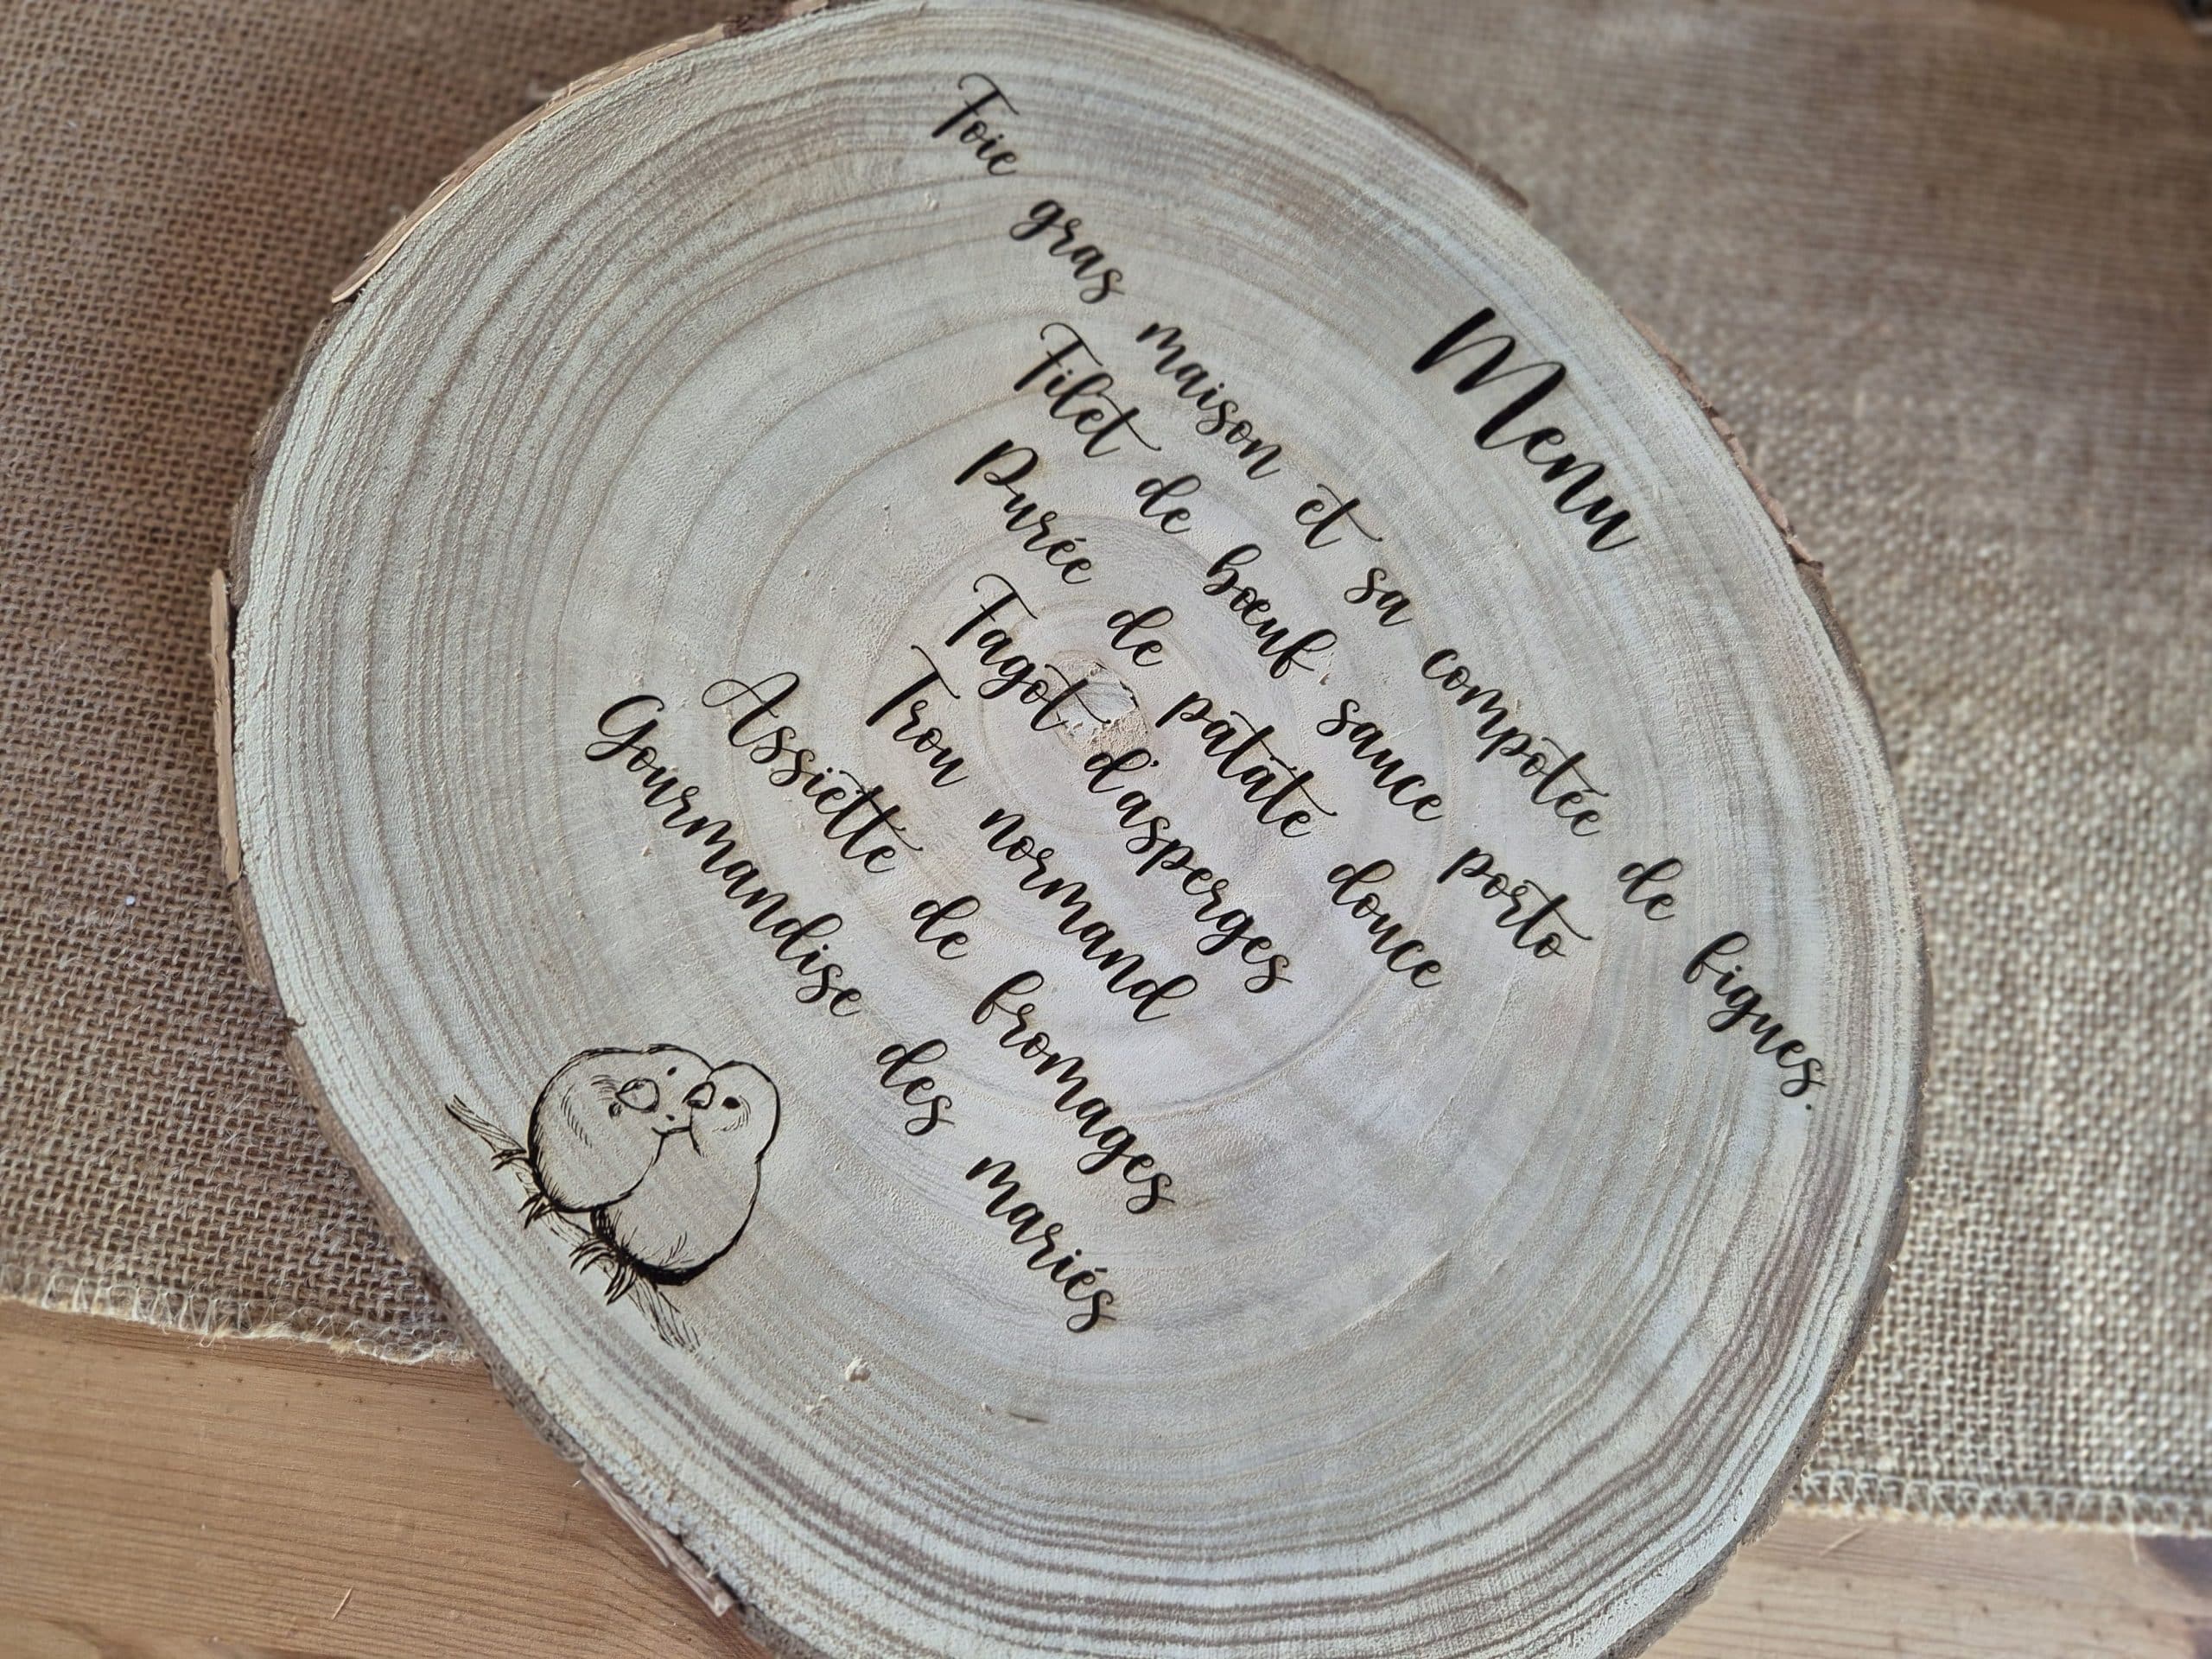 Menu
Foie gras maison et sa compotée de figues.
Filet de bœuf sauce porto
Purée de patate douce
Fagot d'asperges
Trou normand
Assiette de fromages
Gourmandise des mariés